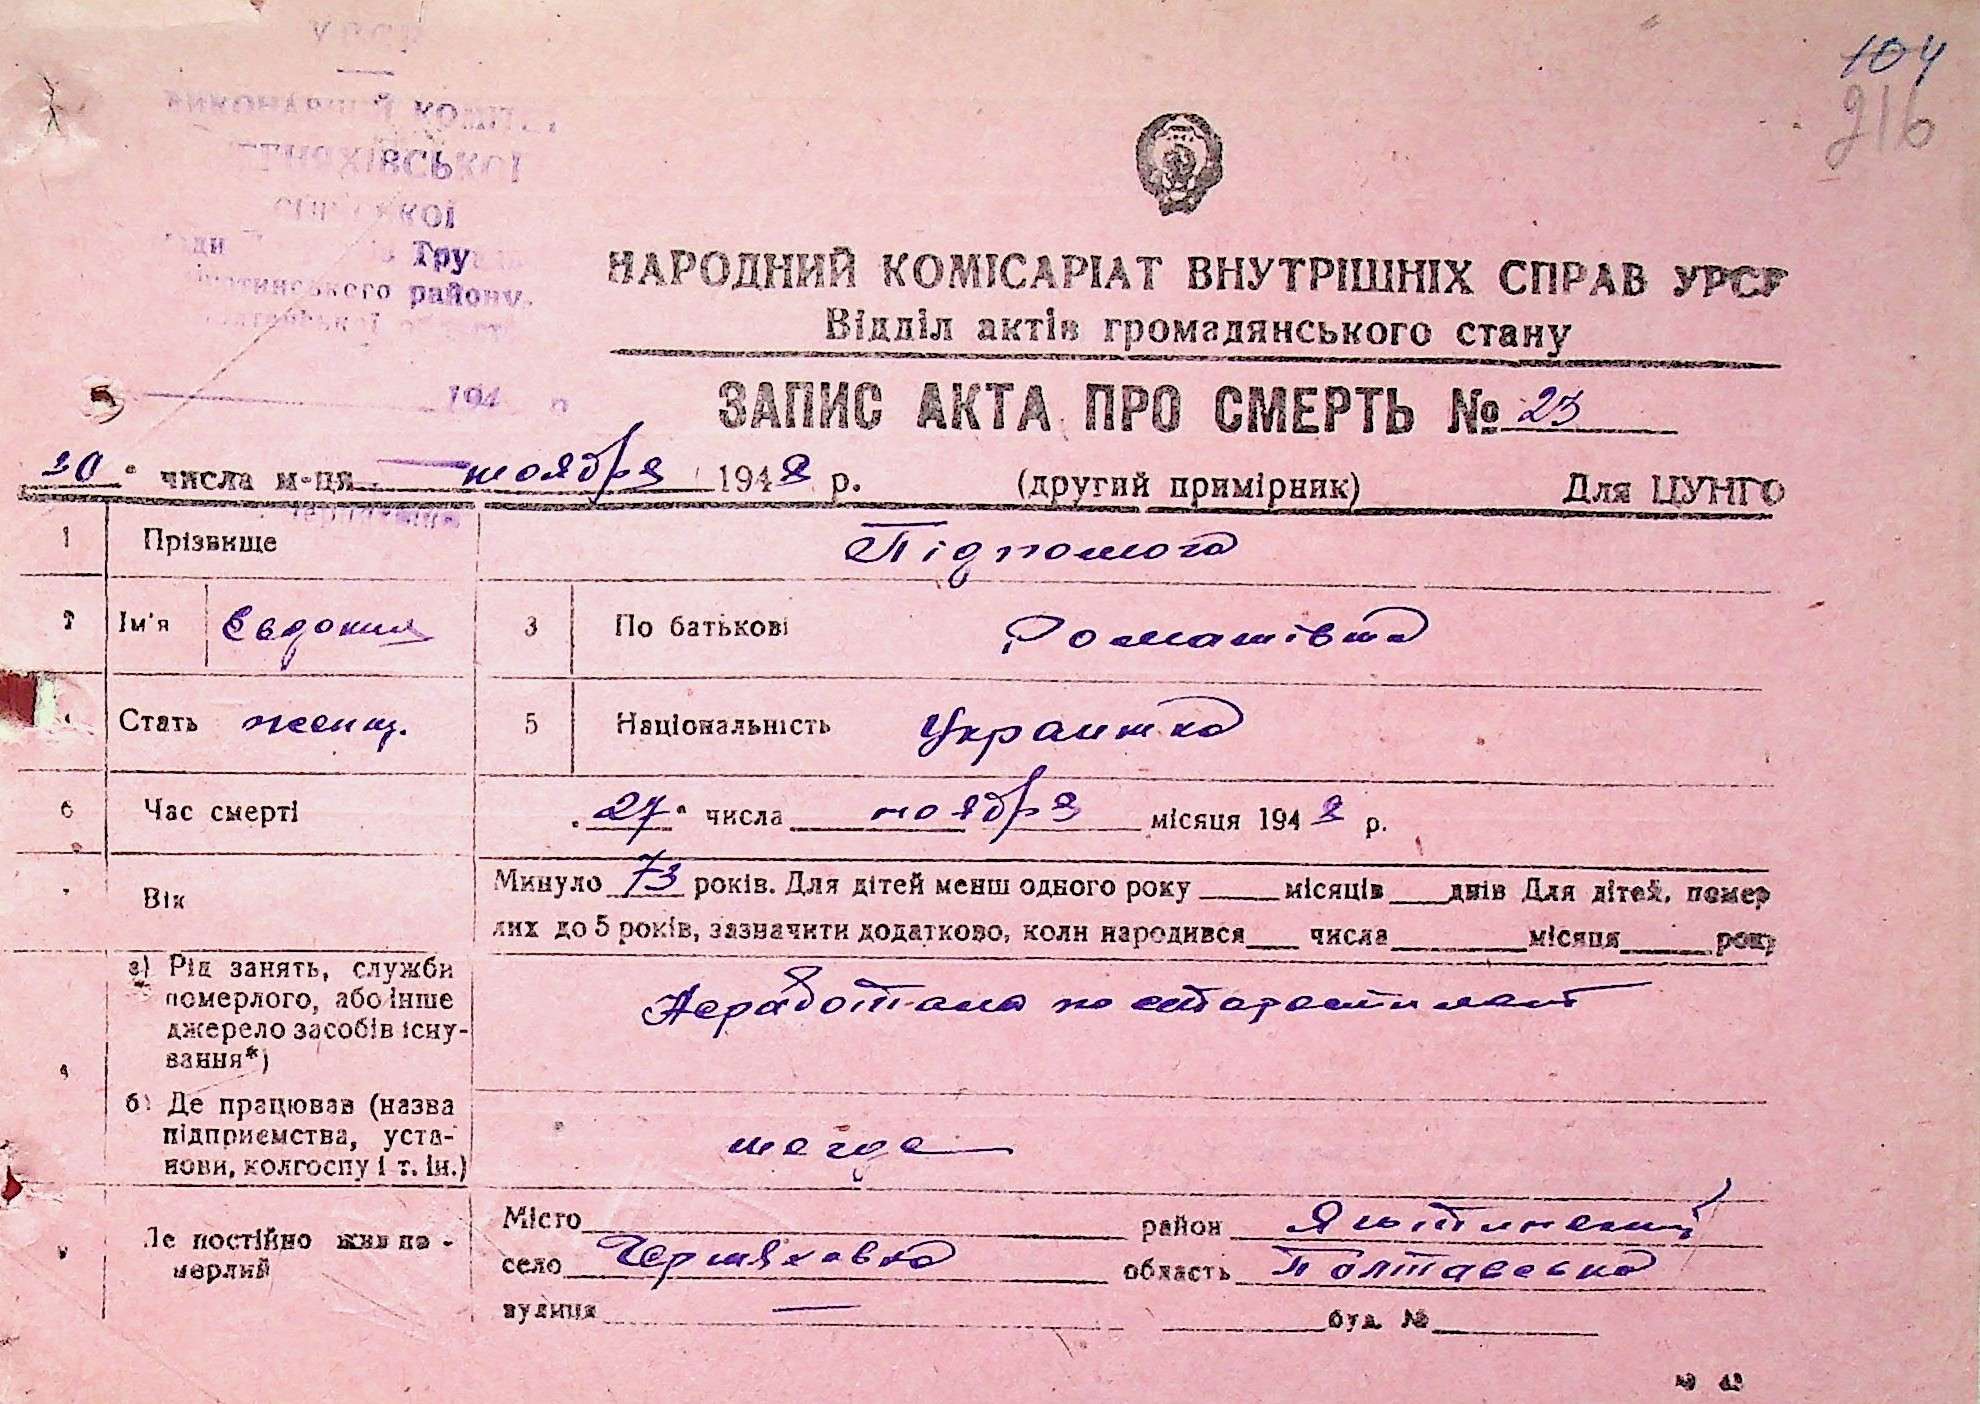 104
216
КОМІТЕТ
району.
НАРОДНИЙ КОМІСАРІАТ ВНУТРІШНІХ СПРАВ УРСР
Відділ актів громадянського стану
194 р
ЗАПИС АКТА ПРО СМЕРТЬ № 23
30 числа м-ця ноября 1948 р. (другий примірник) Для ЦУНГО
1 Прізвище Підпомога
2 Ім'я Евдокия 3 По батькові Романівна
Стать женщ. 5 Національність Украинка
6 Час смерті 27 числа ноября місяця 1948 р.
Вік Минуло 73 років. Для дітей менш одного року місяців днів Для дітей, помер
лих до 5 років, зазначити додатково, коли народився числа місяця року
а) Рід занять, служби
померлого, або інше
джерело засобів існу-
вання*)
Неработала по старости лет
б) Де працював (назва
підприємства, уста-
нови, колгоспу і т. ін.)
негде
Де постійно жив по-
мерлий
Місто район
село Черняховка область Полтавська
вулиця — буд. №